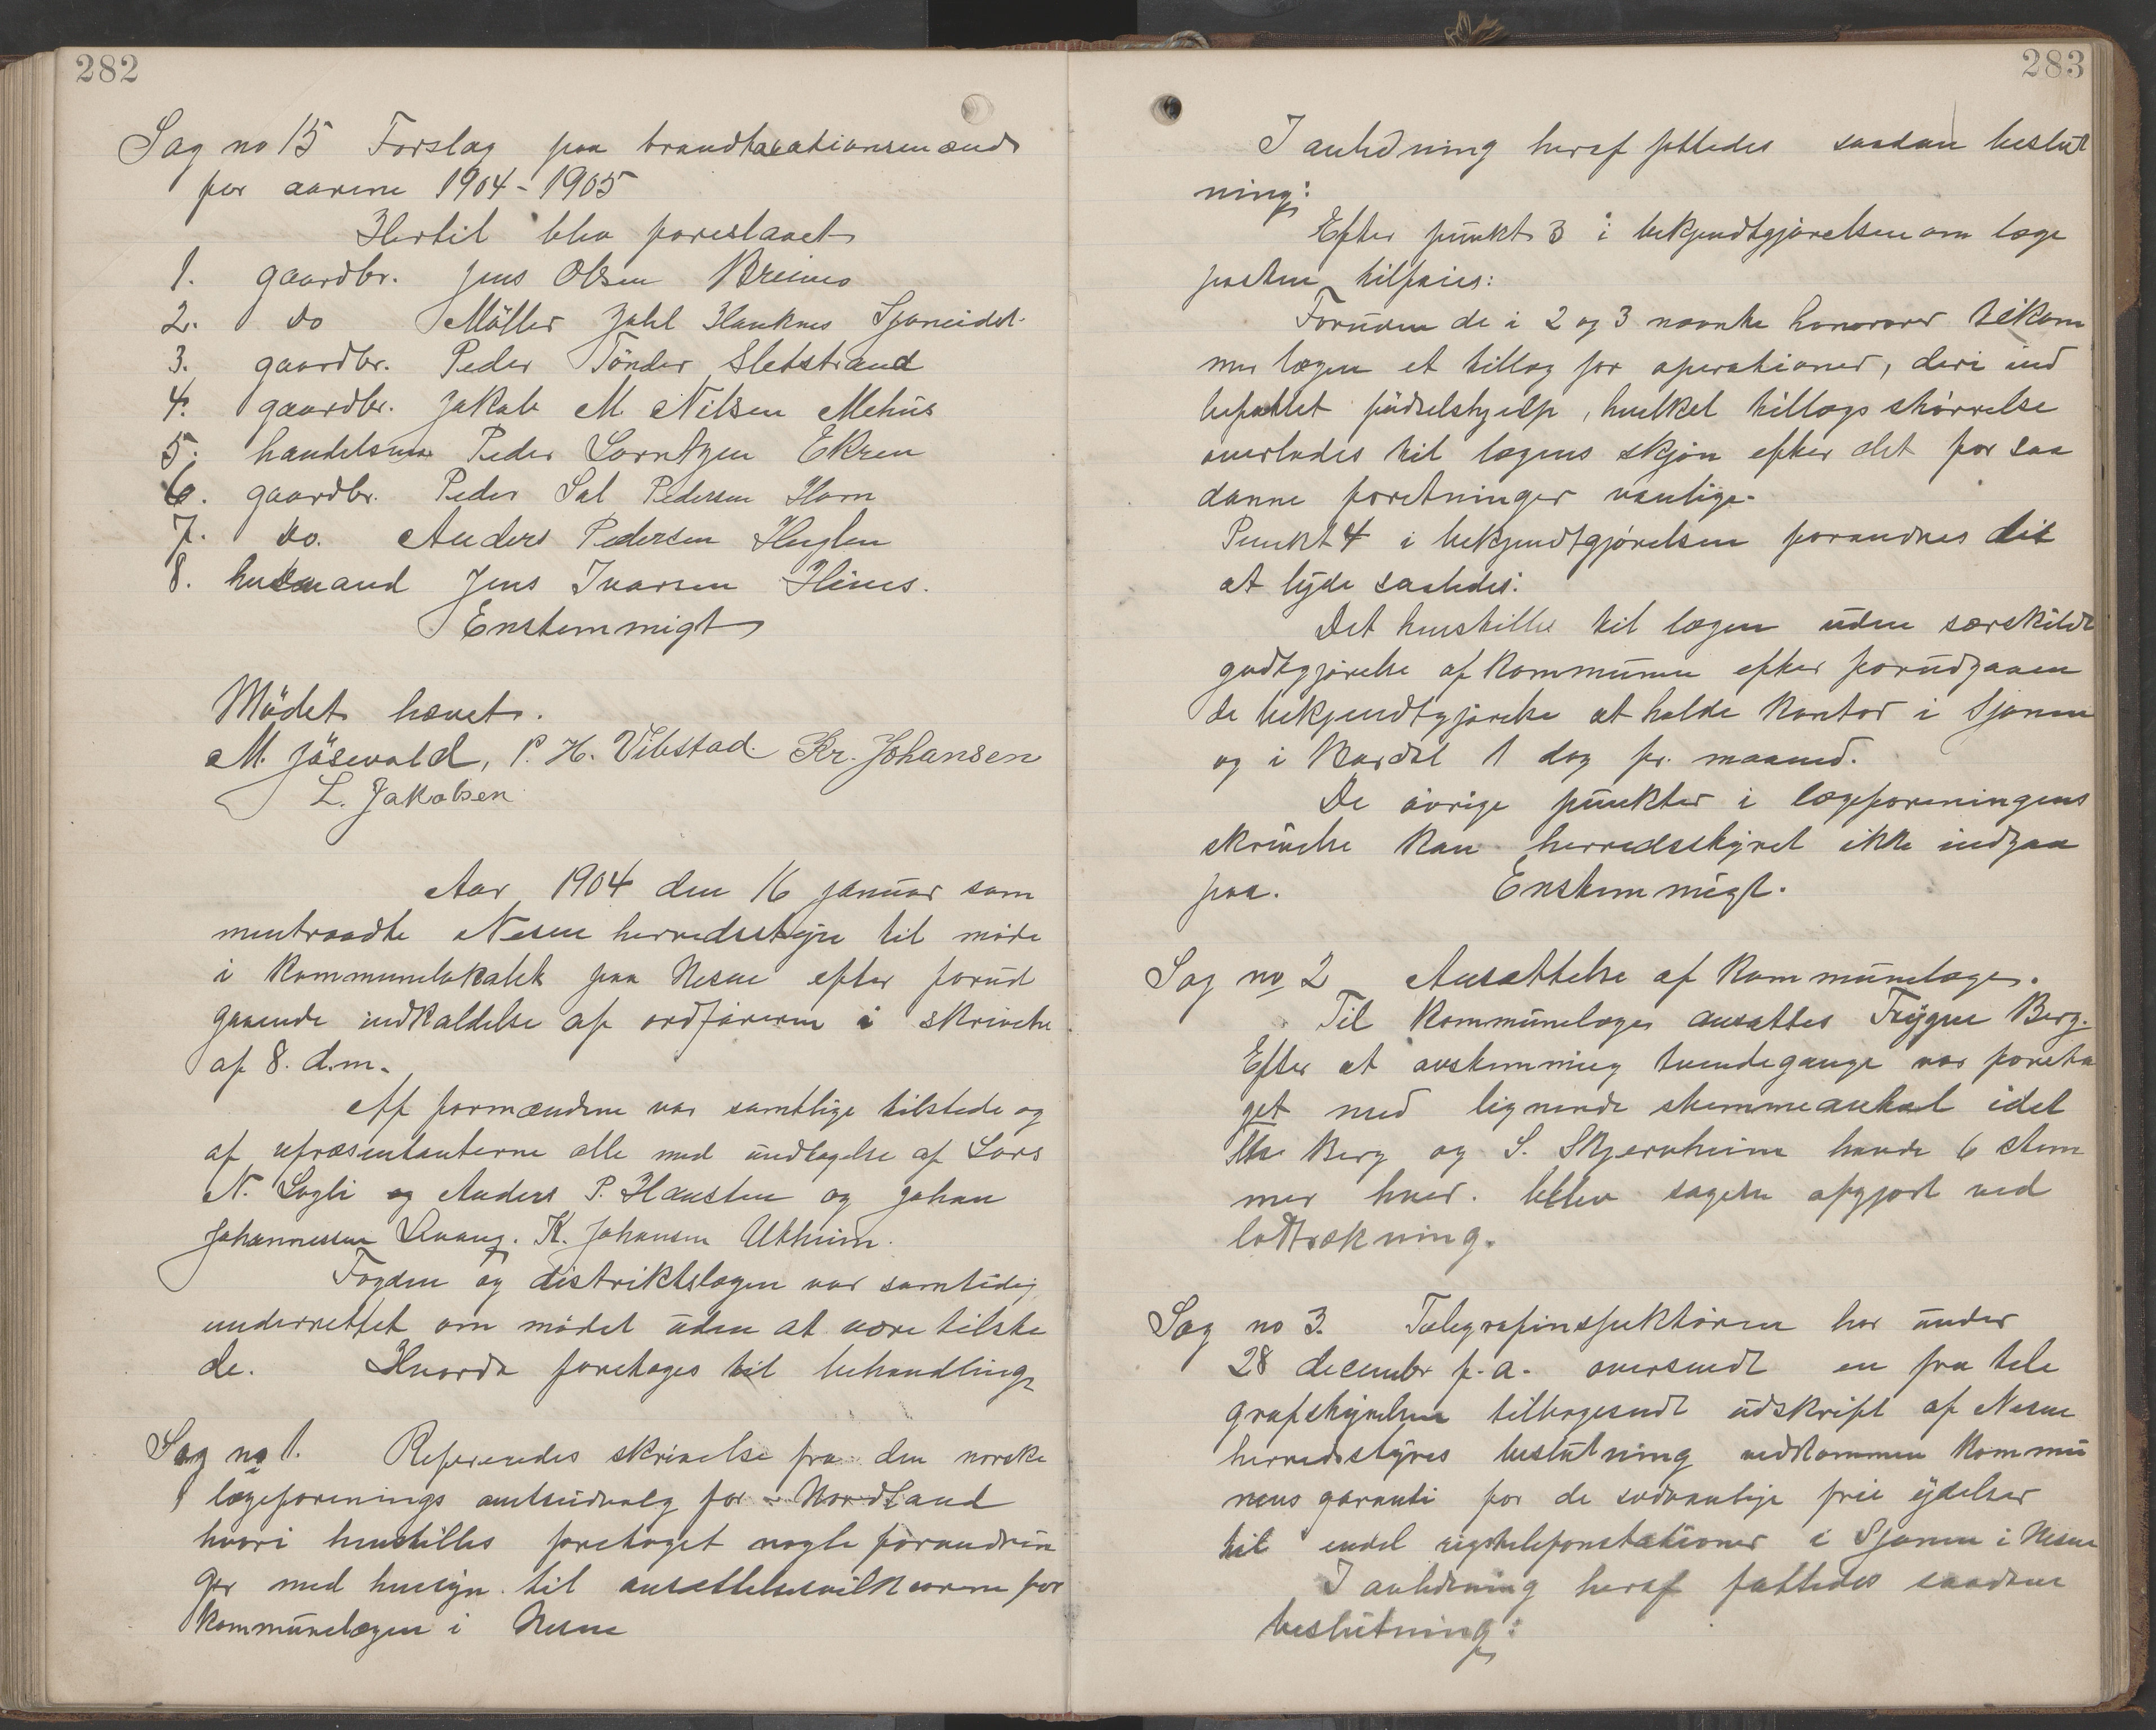 282
Sag no 15 Forslag paa brandtaxationsmænd
for aarene 1904-1905
Hertil blev foreslaaet
1. gaardbr. Jens Olsen Breines
2. do Möller Jahl Hauknes Sjoneidet.
3. gaardbr. Peder Tönder Sletstrand
4. gaardbr. Jakob M Nilsen Mehus
5. handelsm Peder Lorntzen Ekren
6. gaardbr. Peder Sal Pedersen Horn
7. do. Anders Pedersen Huglen
8. husmand Jens Ivarsen Hines.
Enstemmigt
Mödet hævet.
M. Jösevold, P. H. Vibstad. Kr. Johansen
L. Jakobsen
Aar 1904 den 16 januar sam
mentraadte Nesne herredsstyre til möde
i kommunelokalet paa Nesne efter forud
gaaende indkaldelse af ordføreren i skrivelse
af 8. d.m.
Af formændene var samtlige tilstede og
af repræsentanterne alle med undtagelse af Lars
N. Sogli og Anders P. Hansten og Johan
Johannessen Kvang. K. Johansen Utheim.
Fogden og distriktslægen var samtidig
underrettet om mödet uden at være tilste
de. Hvorda foretoges til behandling
Sag no 1. Refereredes skrivelse fra den norske
lægeforenings amtsudvalg for Nordland
hvori henstilles foretaget nogle forandrin
ger med hensyn til ansettelsesvilkaarene for
kommunelægen i Nesne
283
I anledning heraf fattedes saadan beslut
ning:
Efter punkt 3 i bekjendtgjørelsen om læge
posten tilføies:
Foruden de i 2 og 3 nævnte honorarer tilkom
mer lægen et tillæg for operationer, deri ind
befattet födselshjelp, hvilket tillægs størrelse
overlades til lægens skjøn efter det for saa
danne foretninger vanlige.
Punkt 4 i bekjendtgjörelsen forandres dit
at lyde saaledes:
Det henstilles til lægen uden særskildt
godtgjörelse af kommunen efter forudgaaen
de bekjendtgjörelse at holde kontor i Sjonen
og i Bardal 1 dag pr. maaned.
De øvrige punkter i lægeforeningens
skrivelse kan herredsstyret ikke indgaa
paa. Enstemmigt.
Sag no 2 Ansættelse af kommunelæge.
Til kommunelæge ansattes Trygve Berg.
Efter at avstemning tvendegange var foreta
get med lignende stemmeantal idet
Berg og S. Skjernheim havde 6 stem
mer hver. blev sagen afgjort ved
lodtrækning.
Sag no 3. Telegrafinspektören har under
28 decembr f.a. oversendt en fra tele
grafstyrelsen tilbagesendt udskrift af Nesne
herredsstyres beslutning vedkommen kommu
nens garanti for de sedvanlige frie ydelser
til endel rigstelefonstationer i Sjonen i Nesne
I anledning heraf fattedes saadan
beslutning: